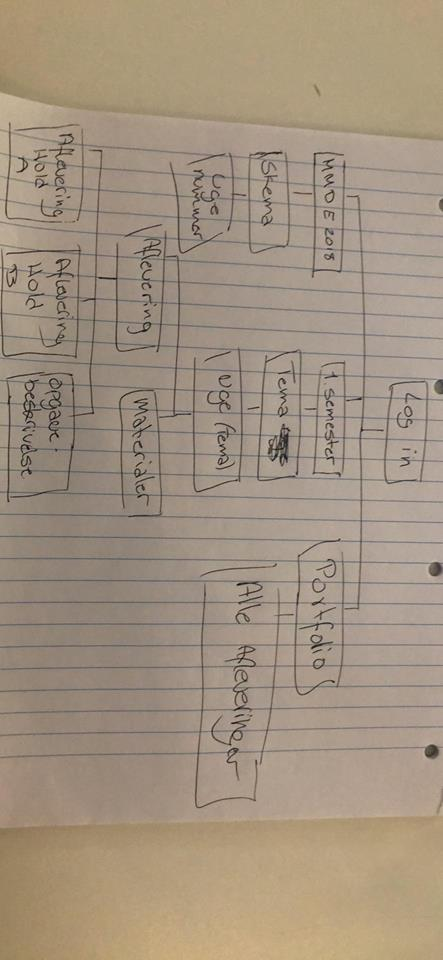 Log in
MMD E 2018
1. semester
Portfolio
Skema
Tema
Alle Afleveringer
Uge
nummer
Uge (Tema)
Aflevering
Materialer
Aflevering
Hold
A
Aflevering
Hold
B
Opgave-
beskrivelse